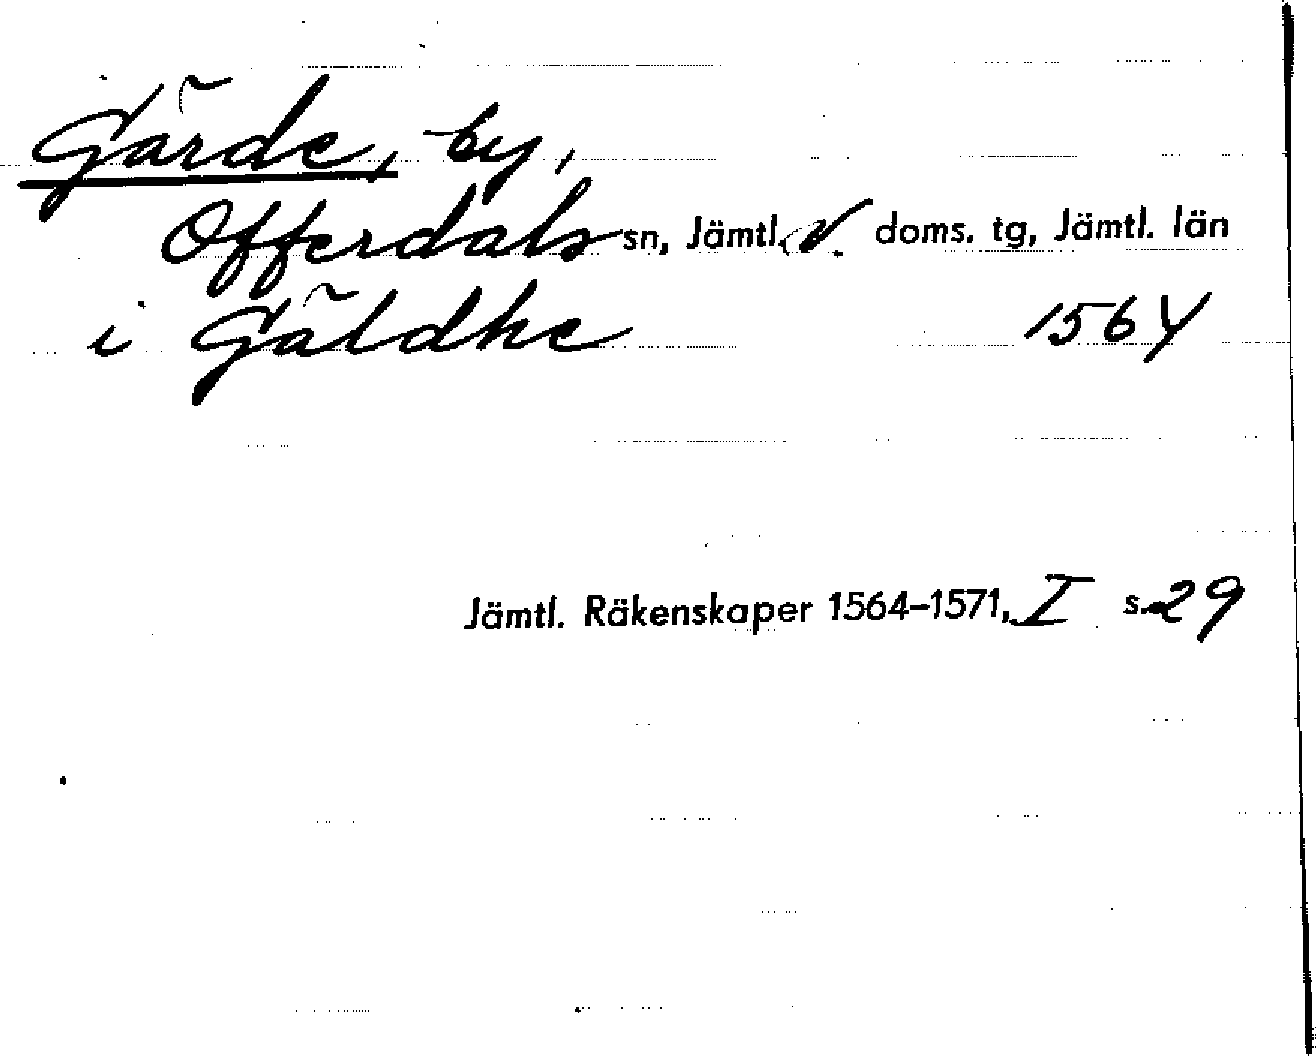 Gärde, by,
Offerdals sn, Jämtl. v. doms. tg, Jämtl. län
i Gäldhe 1564
Jämtl. Räkenskaper 1564–1571, I s. 29